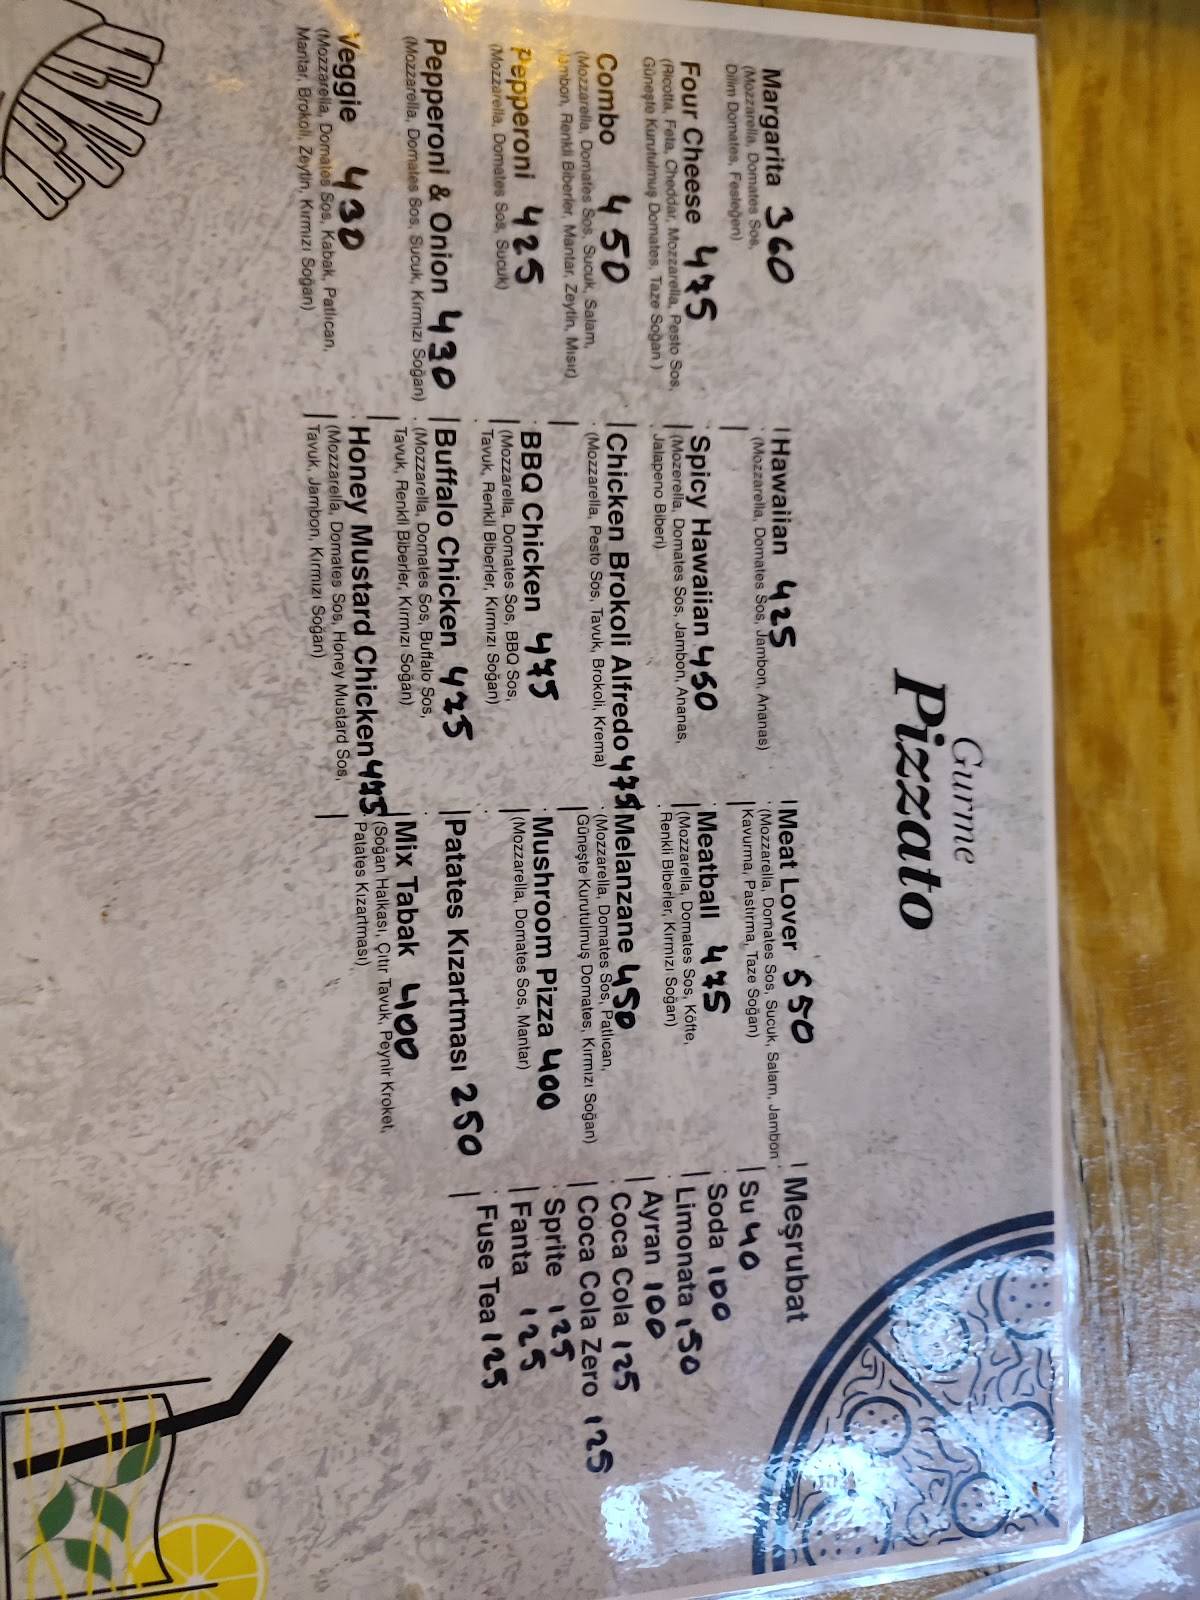 Gurme
Pizzato
Margarita 360
(Mozzarella, Domates Sos,
Dilim Domates, Fesleğen)
Four Cheese 475
(Ricotta, Feta, Cheddar, Mozzarella, Pesto Sos,
Güneşte Kurutulmuş Domates, Taze Soğan )
Combo 450
(Mozzarella, Domates Sos, Sucuk, Salam,
Jambon, Renkli Biberler, Mantar, Zeytin, Mısır)
Pepperoni 425
(Mozzarella, Domates Sos, Sucuk)
Pepperoni & Onion 430
(Mozzarella, Domates Sos, Sucuk, Kırmızı Soğan)
Veggie 430
(Mozzarella, Domates Sos, Kabak, Patlıcan,
Mantar, Brokoli, Zeytin, Kırmızı Soğan)
Hawaiian 425
(Mozzarella, Domates Sos, Jambon, Ananas)
Spicy Hawaiian 450
(Mozerella, Domates Sos, Jambon, Ananas,
Jalapeno Biberi)
Chicken Brokoli Alfredo 475
(Mozzarella, Pesto Sos, Tavuk, Brokoli, Krema)
BBQ Chicken 475
(Mozzarella, Domates Sos, BBQ Sos,
Tavuk, Renkli Biberler, Kırmızı Soğan)
Buffalo Chicken 475
(Mozzarella, Domates Sos, Buffalo Sos,
Tavuk, Renkli Biberler, Kırmızı Soğan)
Honey Mustard Chicken 475
(Mozzarella, Domates Sos, Honey Mustard Sos,
Tavuk, Jambon, Kırmızı Soğan)
Meat Lover 550
(Mozzarella, Domates Sos, Sucuk, Salam, Jambon
Kavurma, Pastırma, Taze Soğan)
Meatball 475
(Mozzarella, Domates Sos, Köfte,
Renkli Biberler, Kırmızı Soğan)
Melanzane 450
(Mozzarella, Domates Sos, Patlıcan,
Güneşte Kurutulmuş Domates, Kırmızı Soğan)
Mushroom Pizza 400
(Mozzarella, Domates Sos, Mantar)
Patates Kızartması 250
Mix Tabak 400
(Soğan Halkası, Çıtır Tavuk, Peynir Kroket,
Patates Kızartması)
Meşrubat
Su 40
Soda 100
Limonata 150
Ayran 100
Coca Cola 125
Coca Cola Zero 125
Sprite 125
Fanta 125
Fuse Tea 125